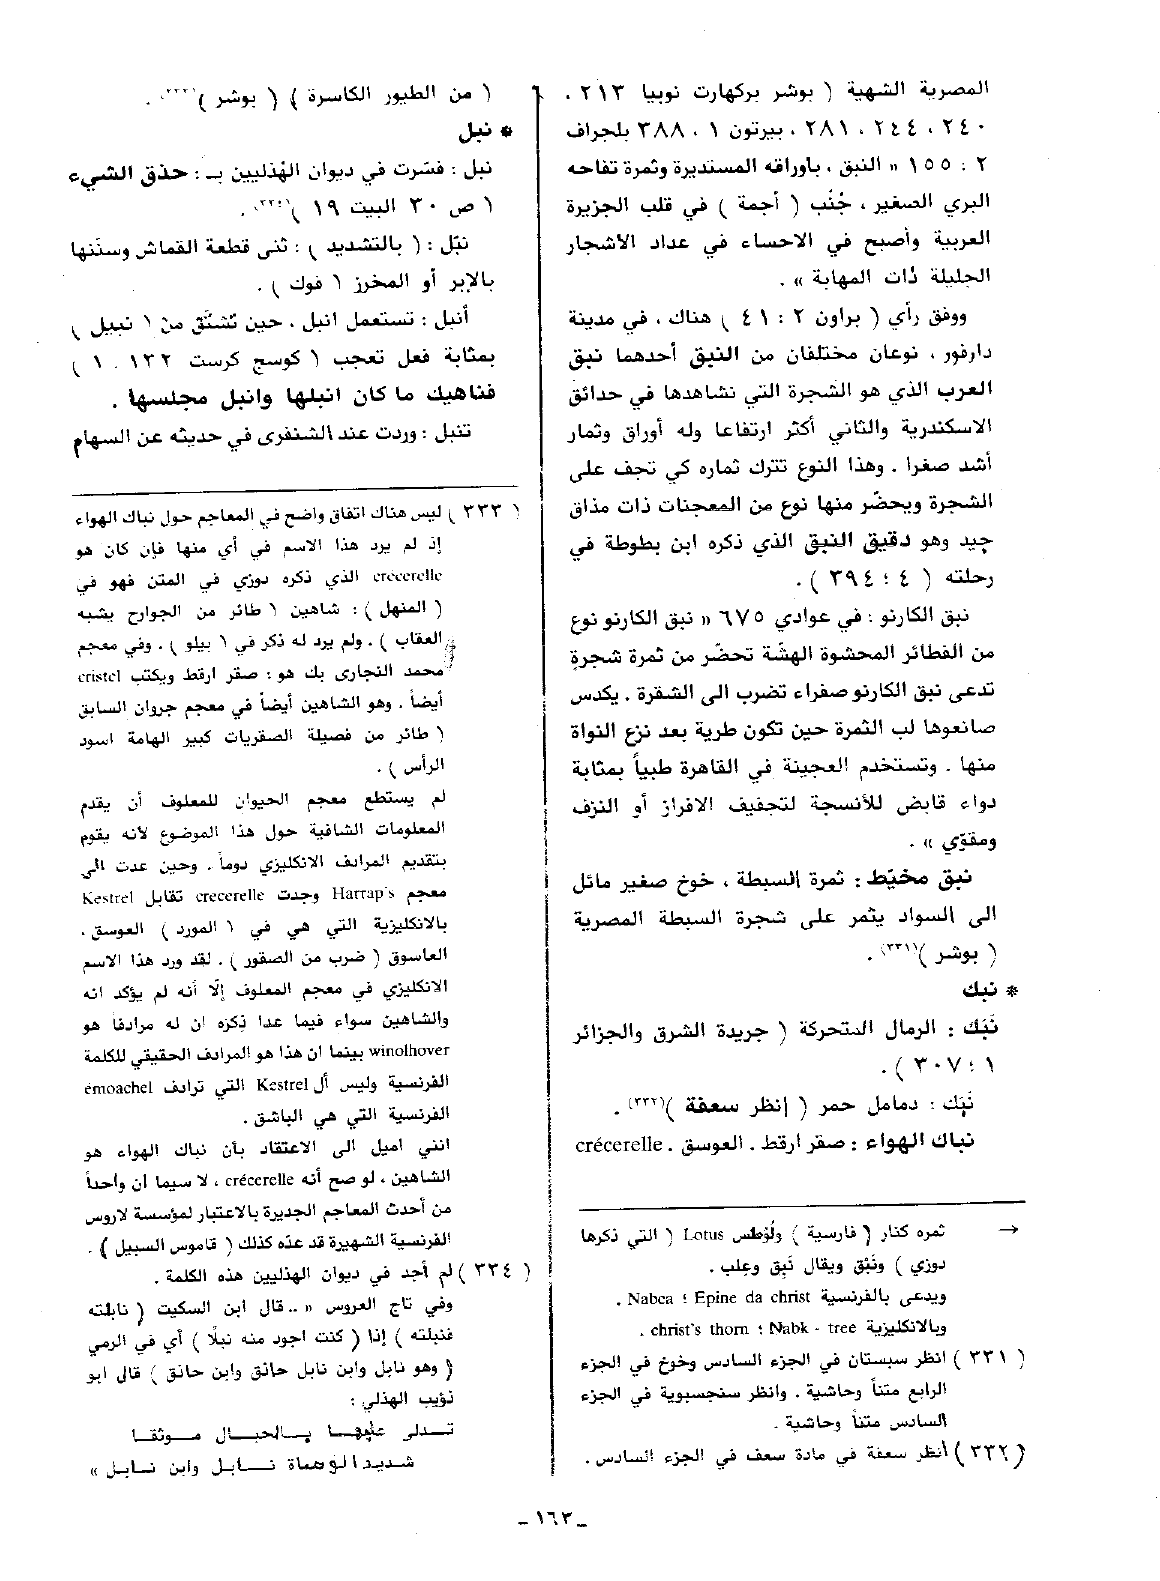 المصرية الشهية ( بوشر بركهارت نوبيا ٢١٣ ،
٢٤٠ ، ٢٤٤ ، ٢٨١ ، بيرتون ١ ، ٣٨٨ بلجراف
٢ : ١٥٥ « النبق ، بأوراقه المستديرة وثمرة تفاحه
البري الصغير ، جُنْب ( أجمة ) في قلب الجزيرة
العربية وأصبح في الاحساء في عداد الأشجار
الجليلة ذات المهابة » .
ووفق رأي ( براون ٢ : ٤١ ) هناك ، في مدينة
دارفور ، نوعان مختلفان من النبق أحدهما نبق
العرب الذي هو الشجرة التي نشاهدها في حدائق
الاسكندرية والثاني أكثر ارتفاعا وله أوراق وثمار
أشد صغرا . وهذا النوع تترك ثماره كي تجف على
الشجرة ويحضّر منها نوع من المعجنات ذات مذاق
جيد وهو دقيق النبق الذي ذكره ابن بطوطة في
رحلته ( ٤ ؛ ٣٩٤ ) .
نبق الكارنو : في عوادي ٦٧٥ « نبق الكارنو نوع
من الفطائر المحشوة الهشّة تحضّر من ثمرة شجرةٍ
تدعى نبق الكارنو صفراء تضرب الى الشقرة . يكدس
صانعوها لب الثمرة حين تكون طرية بعد نزع النواة
منها . وتستخدم العجينة في القاهرة طبياً بمثابة
دواء قابض للأنسجة لتجفيف الافراز أو النزف
ومقوّي » .
نبق مخيّط : ثمرة السبطة ، خوخ صغير مائل
الى السواد يثمر على شجرة السبطة المصرية
( بوشر )(٣٣١) .
* نبك
نَبَك : الرمال المتحركة ( جريدة الشرق والجزائر
١ ؛ ٣٠٧ ) .
نَبَك : دمامل حمر ( إنظر سعفة )(٣٣٢) .
نباك الهواء : صقر ارقط . العوسق . crécerelle
→ ثمره كنار ( فارسية ) ولُوطس Lotus ( التي ذكرها
دوزي ) ونَبْق ويقال نَبِق وعِلب .
ويدعى بالفرنسية Nabca ؛ Epine da christ .
وبالانكليزية christ's thorn ؛ Nabk - tree .
( ٣٣١ ) انظر سبستان في الجزء السادس وخوخ في الجزء
الرابع متناً وحاشية . وانظر سنجسبوية في الجزء
السادس متناً وحاشية .
( ٣٣٢ ) أنظر سعفة في مادة سعف في الجزء السادس .
( من الطيور الكاسرة ) ( بوشر )(٣٣٣) .
* نبل
نبل : فسّرت في ديوان الهُذليين بـ : حذق الشيء
( ص ٣٠ البيت ١٩ )(٣٣٤) .
نبّل : ( بالتشديد ) : ثنى قطعة القماش وسنّنها
بالإبر أو المخرز ( فوك ) .
أنبل : تستعمل انبل ، حين تشتّق من ( نبيل )
بمثابة فعل تعجب ( كوسج كرست ١٣٢ . ١ )
فناهيك ما كان انبلها وانبل مجلسها .
تنبل : وردت عند الشنفرى في حديثه عن السهام
( ٣٣٣ ) ليس هناك اتفاق واضح في المعاجم حول نباك الهواء
إذ لم يرد هذا الاسم في أي منها فإن كان هو
crécerelle الذي ذكره دوزي في المتن فهو في
( المنهل ) : شاهين ( طائر من الجوارح يشبه
العقاب ) . ولم يرد له ذكر في ( بيلو ) . وفي معجم
محمد النجاري بك هو : صقر ارقط ويكتب cristel
أيضاً . وهو الشاهين أيضاً في معجم جروان السابق
( طائر من فصيلة الصقريات كبير الهامة اسود
الرأس ) .
لم يستطع معجم الحيوان للمعلوف أن يقدم
المعلومات الشافية حول هذا الموضوع لأنه يقوم
بتقديم المرادف الانكليزي دوماً . وحين عدت الى
معجم Harrap's وجدت crecerelle تقابل Kestrel
بالانكليزية التي هي في ( المورد ) العوسق .
العاسوق ( ضرب من الصقور ) . لقد ورد هذا الاسم
الانكليزي في معجم المعلوف إلّا أنه لم يؤكد انه
والشاهين سواء فيما عدا ذكره ان له مرادفا هو
winolhover بينما ان هذا هو المرادف الحقيقي للكلمة
الفرنسية وليس أل Kestrel التي ترادف émoachel
الفرنسية التي هي الباشق .
انني اميل الى الاعتقاد بأن نباك الهواء هو
الشاهين ، لو صح أنه crécerelle ، لا سيما ان واحداً
من أحدث المعاجم الجديرة بالاعتبار لمؤسسة لاروس
الفرنسية الشهيرة قد عدّه كذلك ( قاموس السبيل ) .
( ٣٣٤ ) لم أجد في ديوان الهذليين هذه الكلمة .
وفي تاج العروس « .. قال ابن السكيت ( نابلته
فنبلته ) إذا ( كنت اجود منه نبلًا ) أي في الرمي
( وهو نابل وابن نابل حاذق وابن حاذق ) قال ابو
ذؤيب الهذلي :
تــدلى عليهــا بــالحبــال مــوثقــا
شديد الوصاة نــابل وابن نــابل »
ـ ١٦٣ ـ